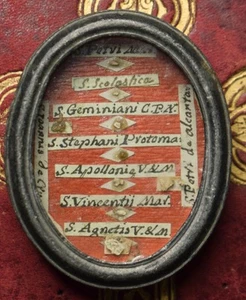 S. Petri A.
S. Scolastica
S. Geminiani C.P.N.
S. Stephani Protomar
S. Apollonie V. & M
S. Vincentii Mar.
S. Agnetis V. & M
S. Petri de alcantar